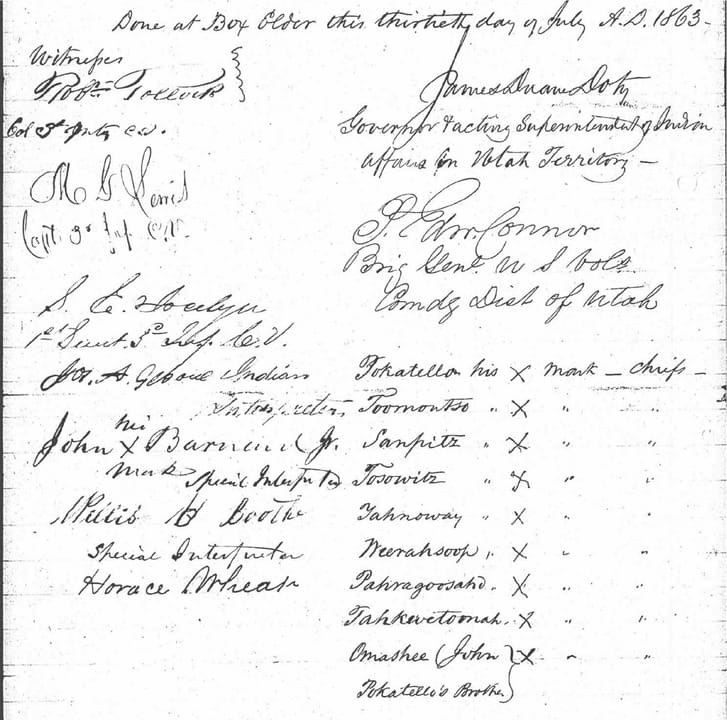 Done at Box Elder this thirtieth day of July A.D. 1863 -
Witnesses
Robt. Pollock
Col 3d Infty C.V.
M G Lewis
Capt. 3d Inf. C.V.
S. E. Jocelyn
1st Lieut 3d Inf. C.V.
Jos. A. Gebow Indian
Interpreter,
his
John X Barnard Jr.
mark Special Interpreter
Willis H Boothe
Special Interpreter
Horace Wheat
James Duane Doty
Governor & acting Superintendent of Indian
affairs in Utah Territory -
P. Edw. Connor
Brig Genl. U S Vols.
Comdg Dist of Utah
Pokatello his X mark - chiefs -
Toomontso " X " "
Sanpitz " X " "
Tosowitz " X " "
Yahnoway " X " "
Weerahsoop " X " "
Pahragoosahd " X " "
Tahkewetoonah " X " "
Omashee (John X " "
Pokatello's Brother)